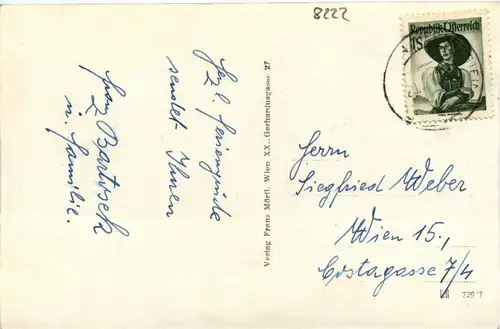 8222
Republik Österreich
1S
Herzl. Feriengrüße
sendet Ihnen
Franz Bartisek
u. Familie.
Verlag Franz Mörtl, Wien XX., Gerhardusgasse 27
Herrn
Siegfried Weber
Wien 15.,
Costagasse 7/4